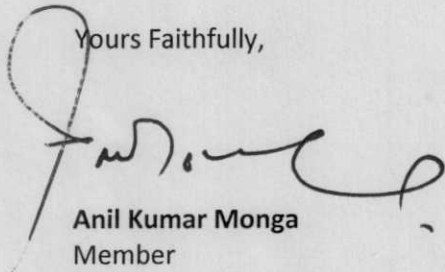 Yours Faithfully,
Anil Kumar Monga
Member